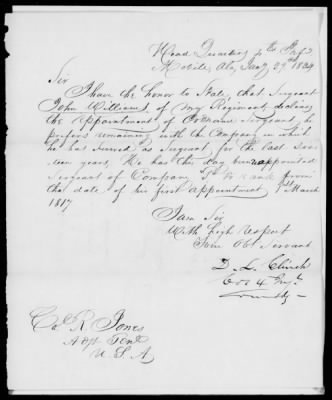 Head Quarters 4th Inf
Mobile, Ala, Jany 29th 1834
Sir
I have the honor to State, that Sergeant
John Williams of my Regiment, declines
the appointment of Ordnance Sergeant, he
prefers remaining with the Company in which
he has served as Sergeant, for the last seven
teen years. He has this day been appointed
Sergeant of Company to rank from
the date of his first appointment March
1817
I am Sir
With high respect
Your Obt Servant
D. L. Clinch
Col 4 Inft
Comdg
Col R. Jones
Adjt Genl
U. S. A